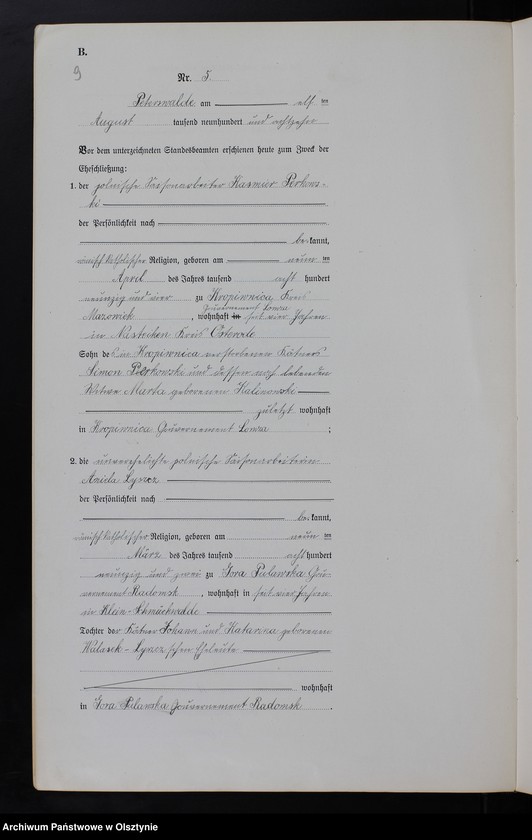 B.
9
Nr. 5.
Peterswalde am elf ten
August tausend neunhundert und achtzehn
Vor dem unterzeichneten Standesbeamten erschienen heute zum Zweck der
Eheschließung:
1. der polnische Saisonarbeiter Kasmier
der Persönlichkeit nach
be kannt,
römisch katholischer Religion, geboren am neun ten
April des Jahres tausend acht hundert
neunzig und vier zu Kropiwnica Kreis
Gouvernement Lomza
Mazowiek, wohnhaft in seit vier Jahren
in Nasteiken Kreis Osterode
Sohn des in Kropiwnica verstorbenen Kätners
Simon und dessen noch lebenden
Witwe Marta geborenen Kalinowski
zuletzt wohnhaft
in Kropiwnica Gouvernement Lomza;
2. die unverehelichte polnische Saisonarbeiterin
Aniela Lyncz
der Persönlichkeit nach
be kannt,
römisch katholischer Religion, geboren am neun ten
März des Jahres tausend acht hundert
neunzig und zwei zu Gora Pulawska Gou-
vernement Radomsk, wohnhaft in seit vier Jahren
in Klein-Schmückwalde
Tochter der Kätner Johann und Katarina geborenen
Walasek-Lyncz'schen Eheleute
wohnhaft
in Gora Pulawska Gouvernement Radomsk.
Archiwum Państwowe w Olsztynie